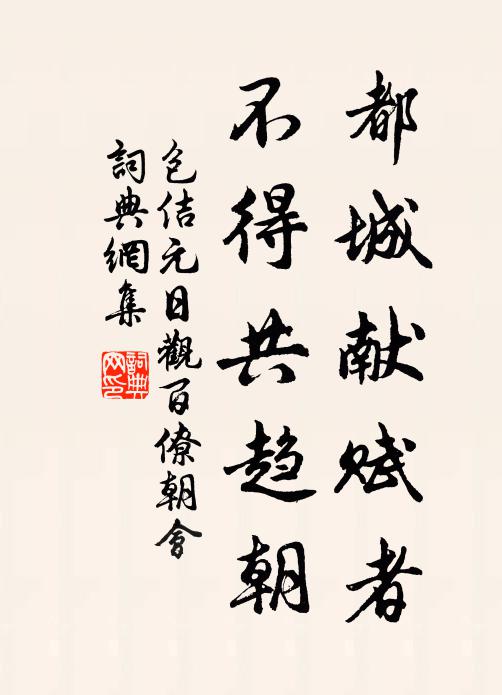 都城献赋者
不得共趋朝
包佶元日觀百僚朝會
詞典網集
詞典网印